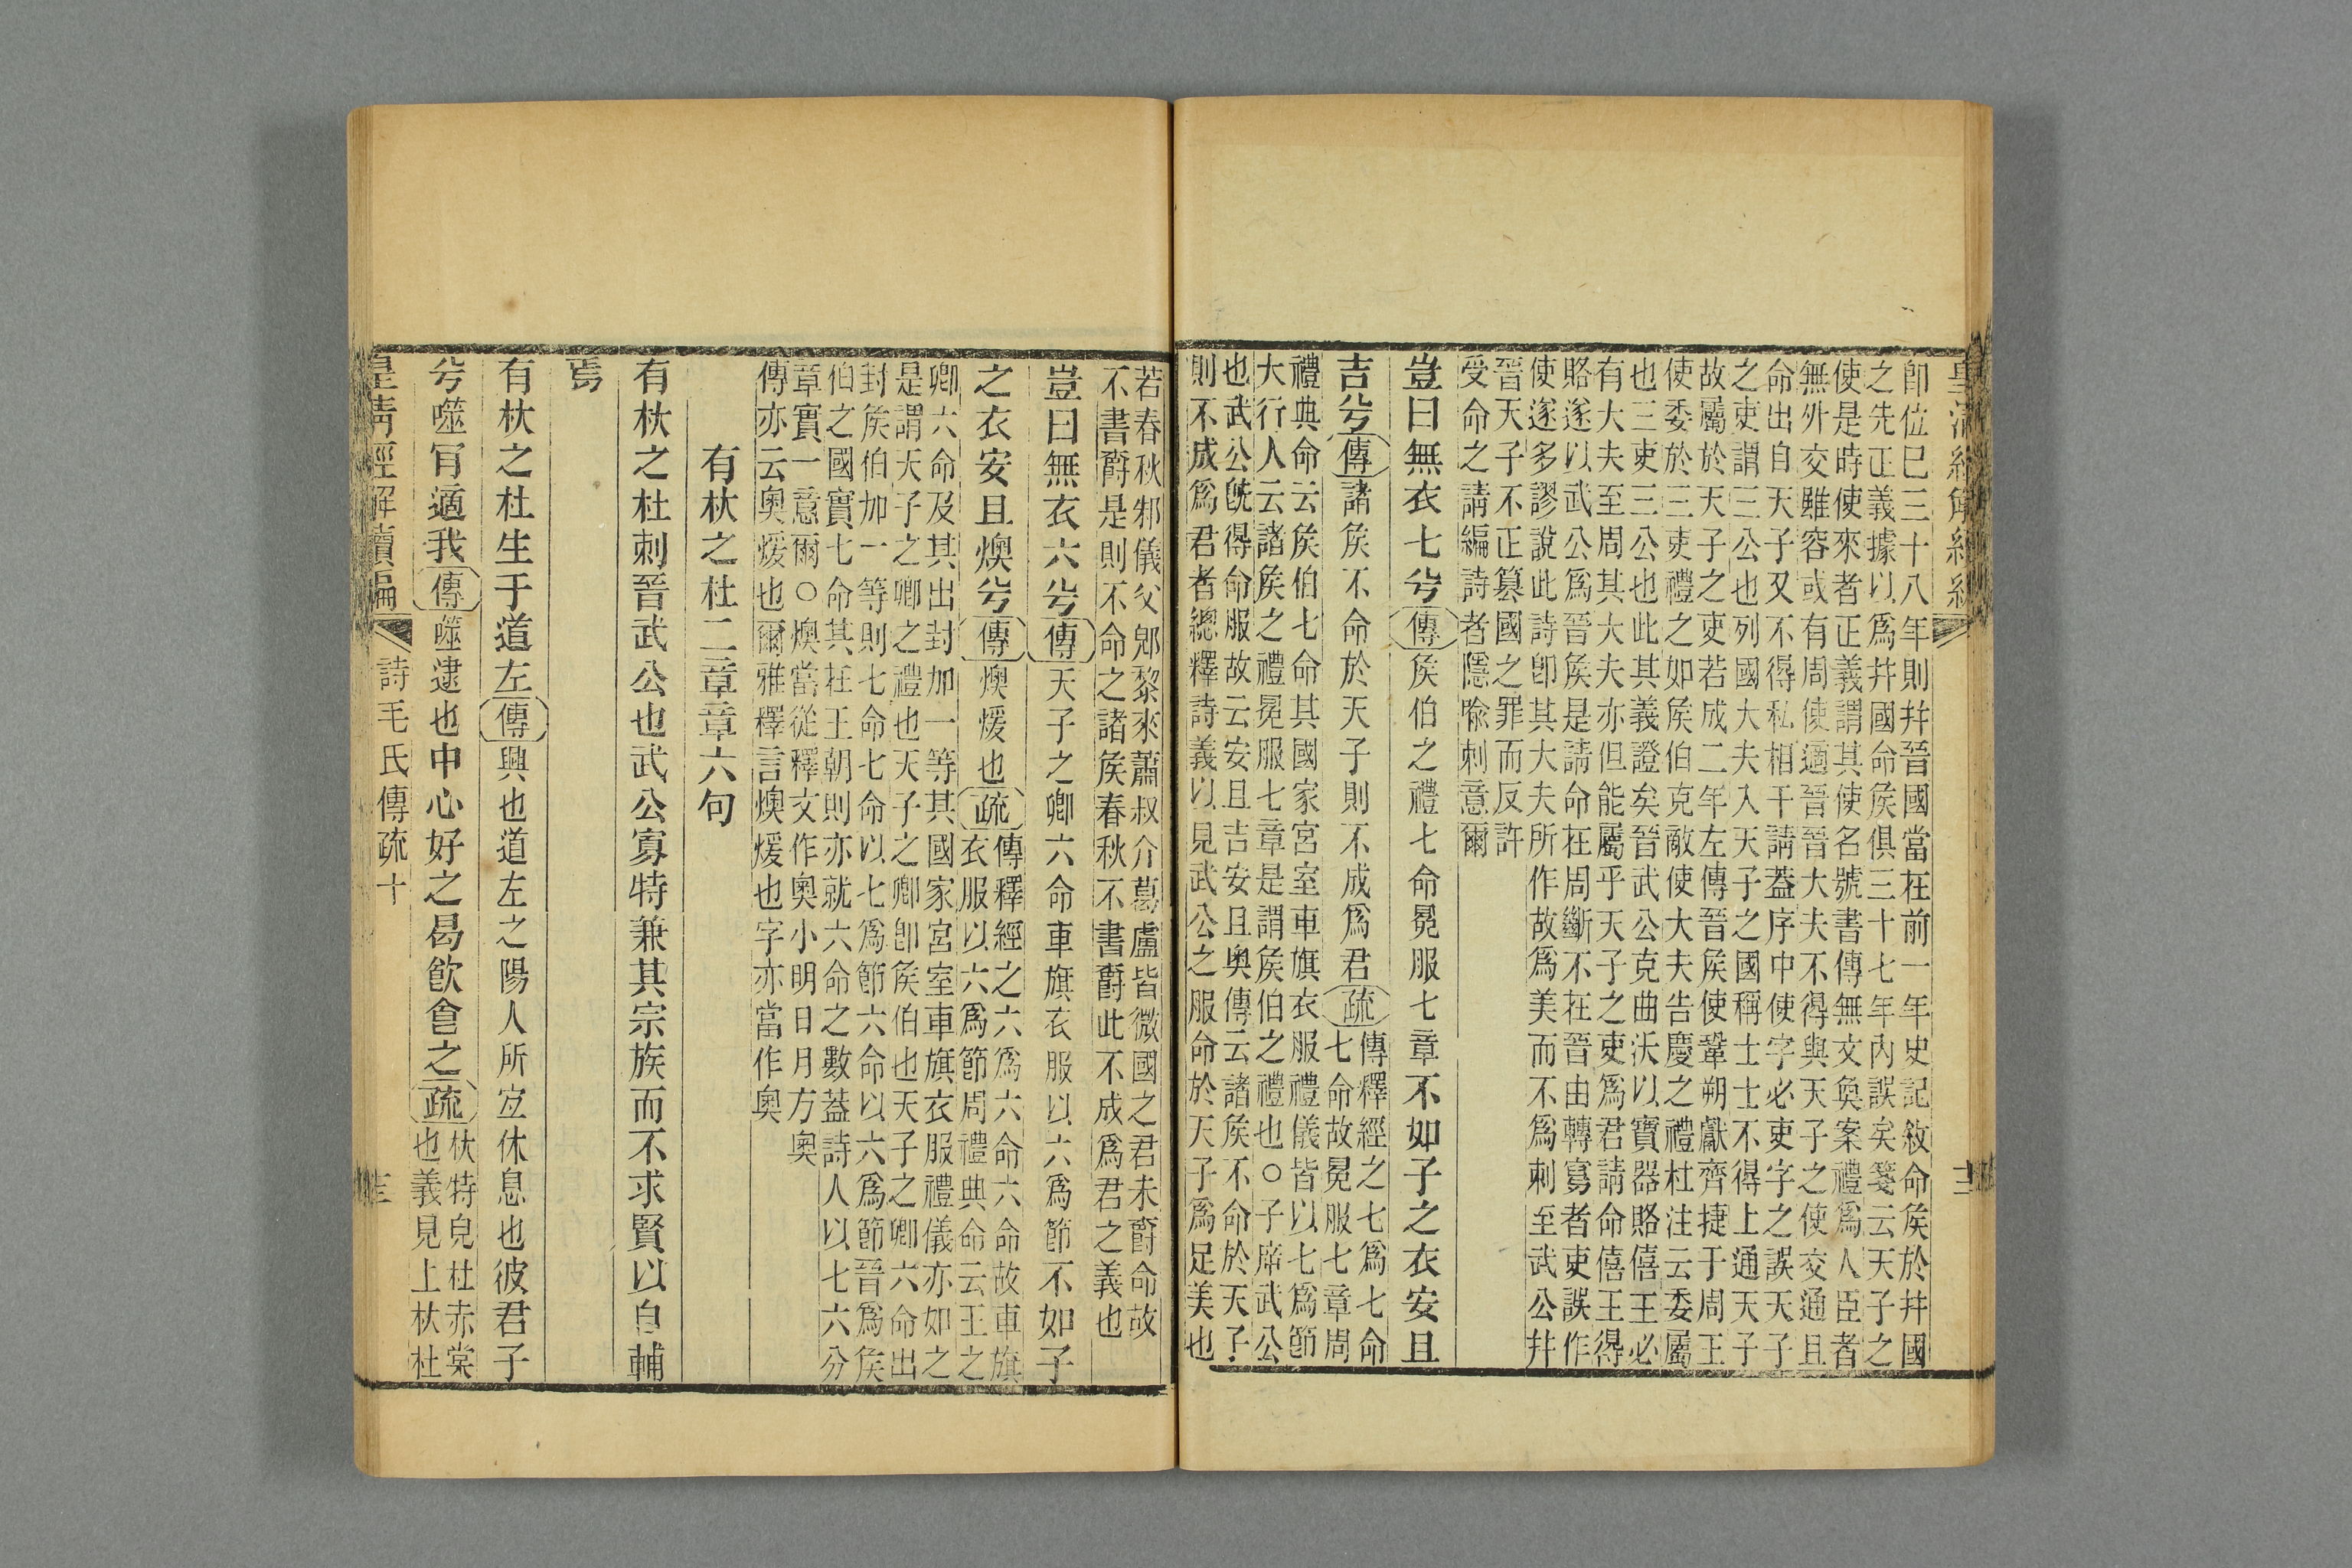 皇清經解續編
卽位已三十八年則幷晉國當在前一年史記敘命矦於幷國
之先正義據以爲幷國命矦俱三十七年內誤矣箋云天子之
使是時使來者正義謂其使名號書傳無文奐案禮爲人臣者
無外交雖容或有周使適晉晉大夫不得與天子之使交通且
命出自天子又不得私相干請蓋序中使字必吏字之誤天子
之吏謂三公也列國大夫入天子之國稱士士不得上通天子
故屬於天子之吏若成二年左傳晉矦使鞏朔獻齊捷于周王
使委於三吏禮之如矦伯克敵使大夫告慶之禮杜注云委屬
也三吏三公也此其義證矣晉武公克曲沃以寶器賂僖王必
有大夫至周其大夫亦但能屬乎天子之吏爲君請命僖王得
賂遂以武公爲晉矦是請命在周斷不在晉由轉寫者吏誤作
使遂多謬說此詩卽其大夫所作故爲美而不爲刺至武公幷
晉天子不正篡國之罪而反許
受命之請編詩者隱喩刺意爾
豈曰無衣七兮傳矦伯之禮七命冕服七章不如子之衣安且
吉兮傳諸矦不命於天子則不成爲君疏傳釋經之七爲七命
七命故冕服七章周
禮典命云矦伯七命其國家宮室車旗衣服禮儀皆以七爲節
大行人云諸矦之禮冕服七章是謂矦伯之禮也○子席武公
也武公旣得命服故云安且吉安且奧傳云諸矦不命於天子
則不成爲君者總釋詩義以見武公之服命於天子爲足美也
若春秋邾儀父郳黎來蕭叔介葛盧皆微國之君未爵命故
不書爵是則不命之諸矦春秋不書爵此不成爲君之義也
豈曰無衣六兮傳天子之卿六命車旗衣服以六爲節不如子
之衣安且燠兮傳燠煖也疏傳釋經之六爲六命六命故車旗
衣服以六爲節周禮典命云王之
卿六命及其出封加一等其國家宮室車旗衣服禮儀亦如之
是謂天子之卿之禮也天子之卿卽矦伯也天子之卿六命出
封矦伯加一等則七命七命以七爲節六命以六爲節晉爲矦
伯之國實七命其在王朝則亦就六命之數蓋詩人以七六分
章實一意爾○燠當從釋文作奧小明日月方奧
傳亦云奧煖也爾雅釋言燠煖也字亦當作奧
有杕之杜二章章六句
有杕之杜刺晉武公也武公寡特兼其宗族而不求賢以自輔
焉
有杕之杜生于道左傳興也道左之陽人所宐休息也彼君子
兮噬肎適我傳噬逮也中心好之曷飮食之疏杕特皃杜赤棠
也義見上杕杜
皇清經解續編
詩毛氏傳疏十